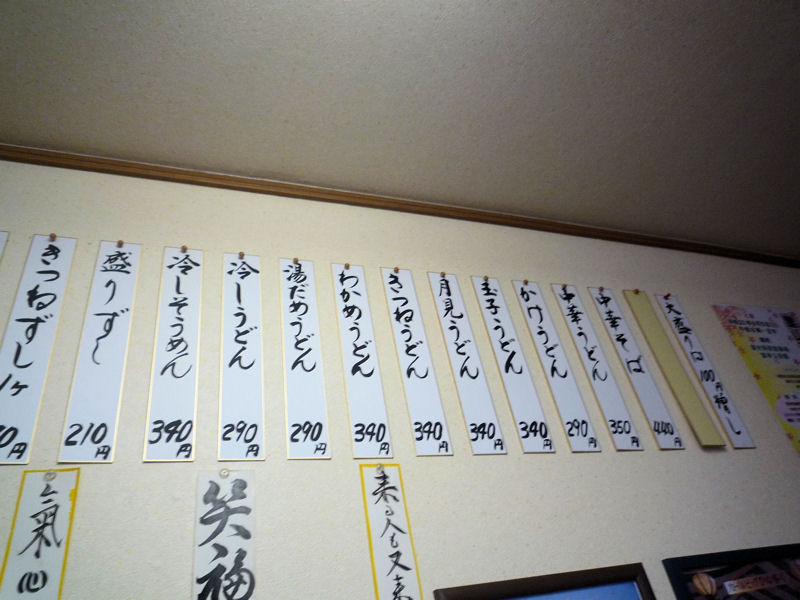 大盛りは100円増し
中華そば
440円
中華うどん
350円
かけうどん
290円
玉子うどん
340円
月見うどん
340円
きつねうどん
340円
わかめうどん
340円
湯だめうどん
290円
冷しうどん
290円
冷しそうめん
340円
盛りずし
210円
きつねずし1ヶ
0円
来る人も又来
笑福
氣
心